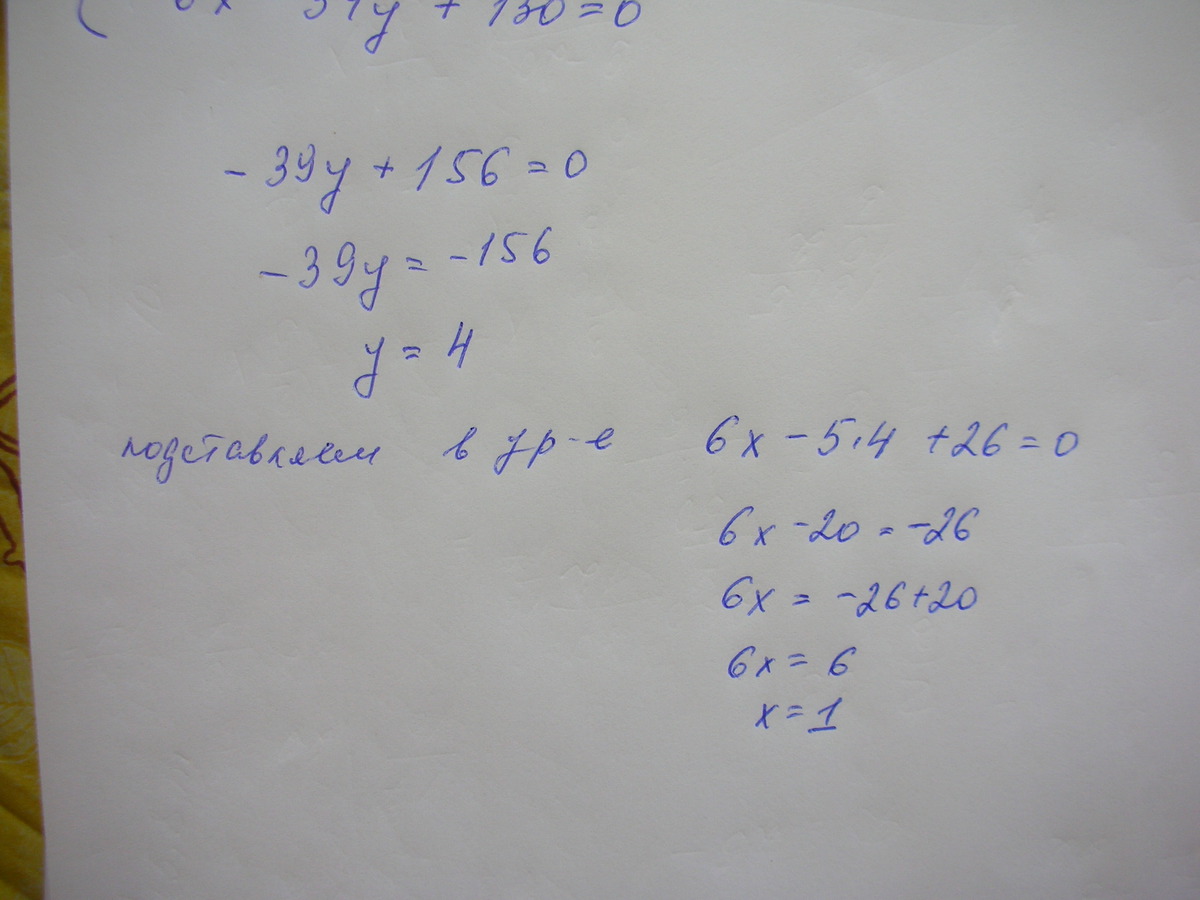 y + 130 = 0
- 39y + 156 = 0
- 39y = -156
y = 4
подставляем в ур-е 6x - 5·4 + 26 = 0
6x - 20 = -26
6x = -26+20
6x = 6
x = 1